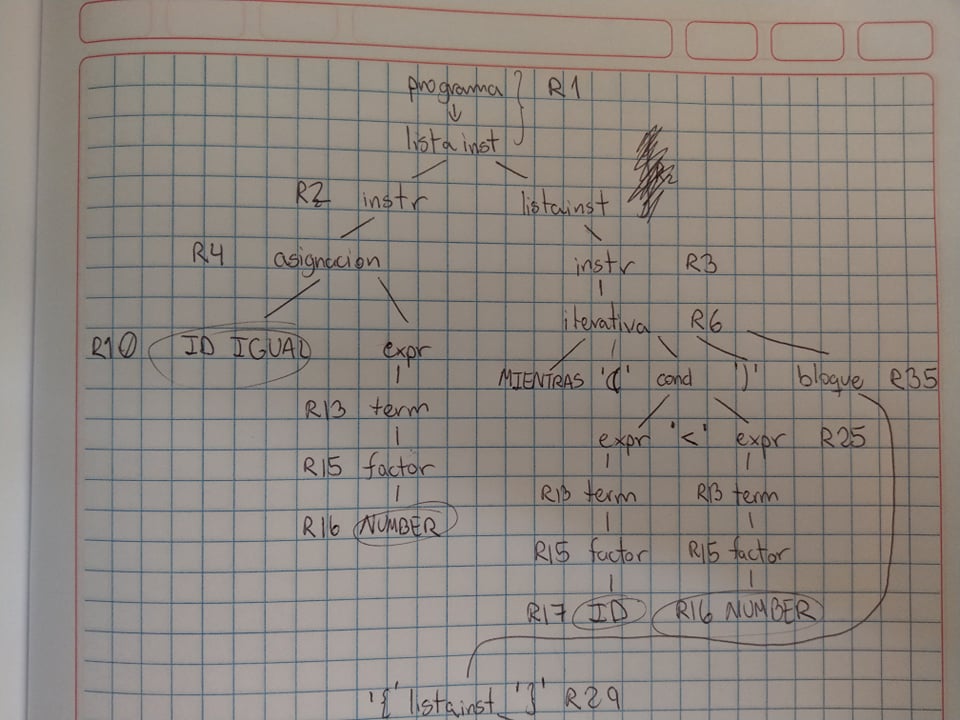 programa } R1
listainst
R2 instr listainst
R4 asignacion instr R3
iterativa R6
R10 ID IGUAL expr MIENTRAS '(' cond ')' bloque R35
R13 term expr '<' expr R25
R15 factor R13 term R13 term
R16 NUMBER R15 factor R15 factor
R17 ID R16 NUMBER
'{' listainst '}' R29